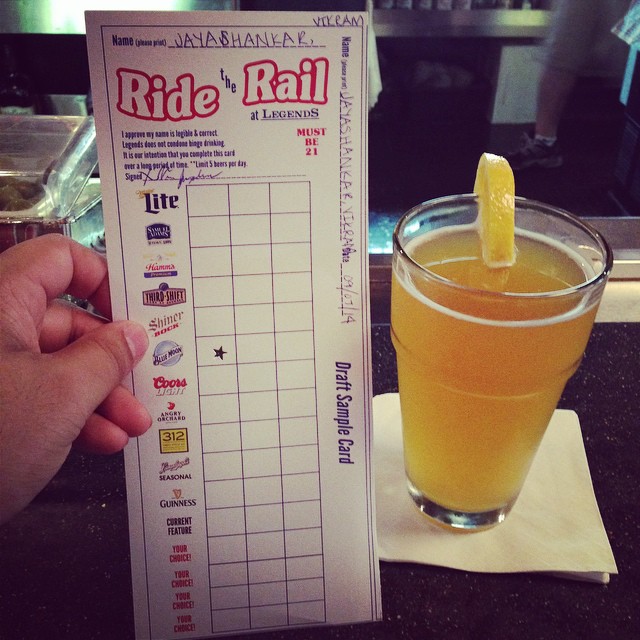 VIKRAM
Name (please print) JAYASHANKAR
Ride the Rail
at LEGENDS
I approve my name is legible & correct
Legends does not condone binge drinking.
It is our intention that you complete this card
over a long period of time. **Limit 5 beers per day.
Signed
MUST
BE
21
Lite
SAMUEL
ADAMS
Hamm's
THIRD SHIFT
Shiner
BOCK
BLUE MOON
Coors
LIGHT
ANGRY
ORCHARD
312
Leinenkugel's
SEASONAL
GUINNESS
CURRENT
FEATURE
YOUR
CHOICE!
YOUR
CHOICE!
YOUR
CHOICE!
YOUR
CHOICE!
Name (please print) JAYASHANKAR VIKRAM 09/07/14
Draft Sample Card